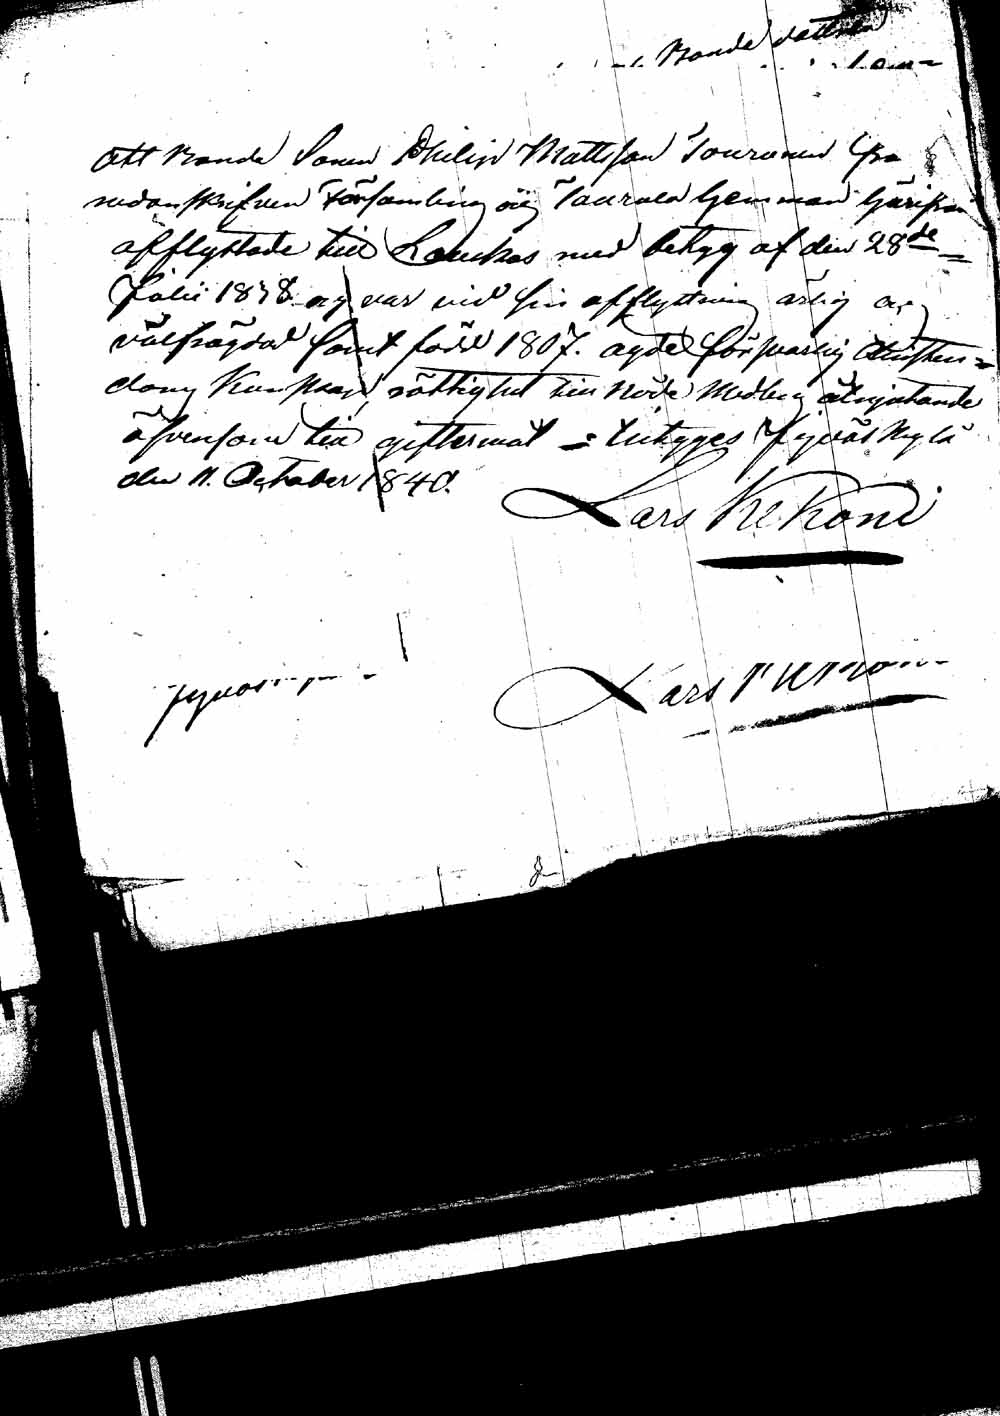 Bonde
Att Bonde Sonen Philip Mattsson Tourunen fra
nedanskrifven Församling og Taurula hemman
afflyttade till Laukas med betyg af den 28de
Julii 1838 og var vid sin afflyttning ärlig og
välfrägdad samt född 1807. ägde försvarlig Christen=
doms Kunskap, rättighet till Nåde Medlens åtnjutande
äfvensom till giftermål = betygges
den 11. October 1840.
Lars Kekoni
Lars